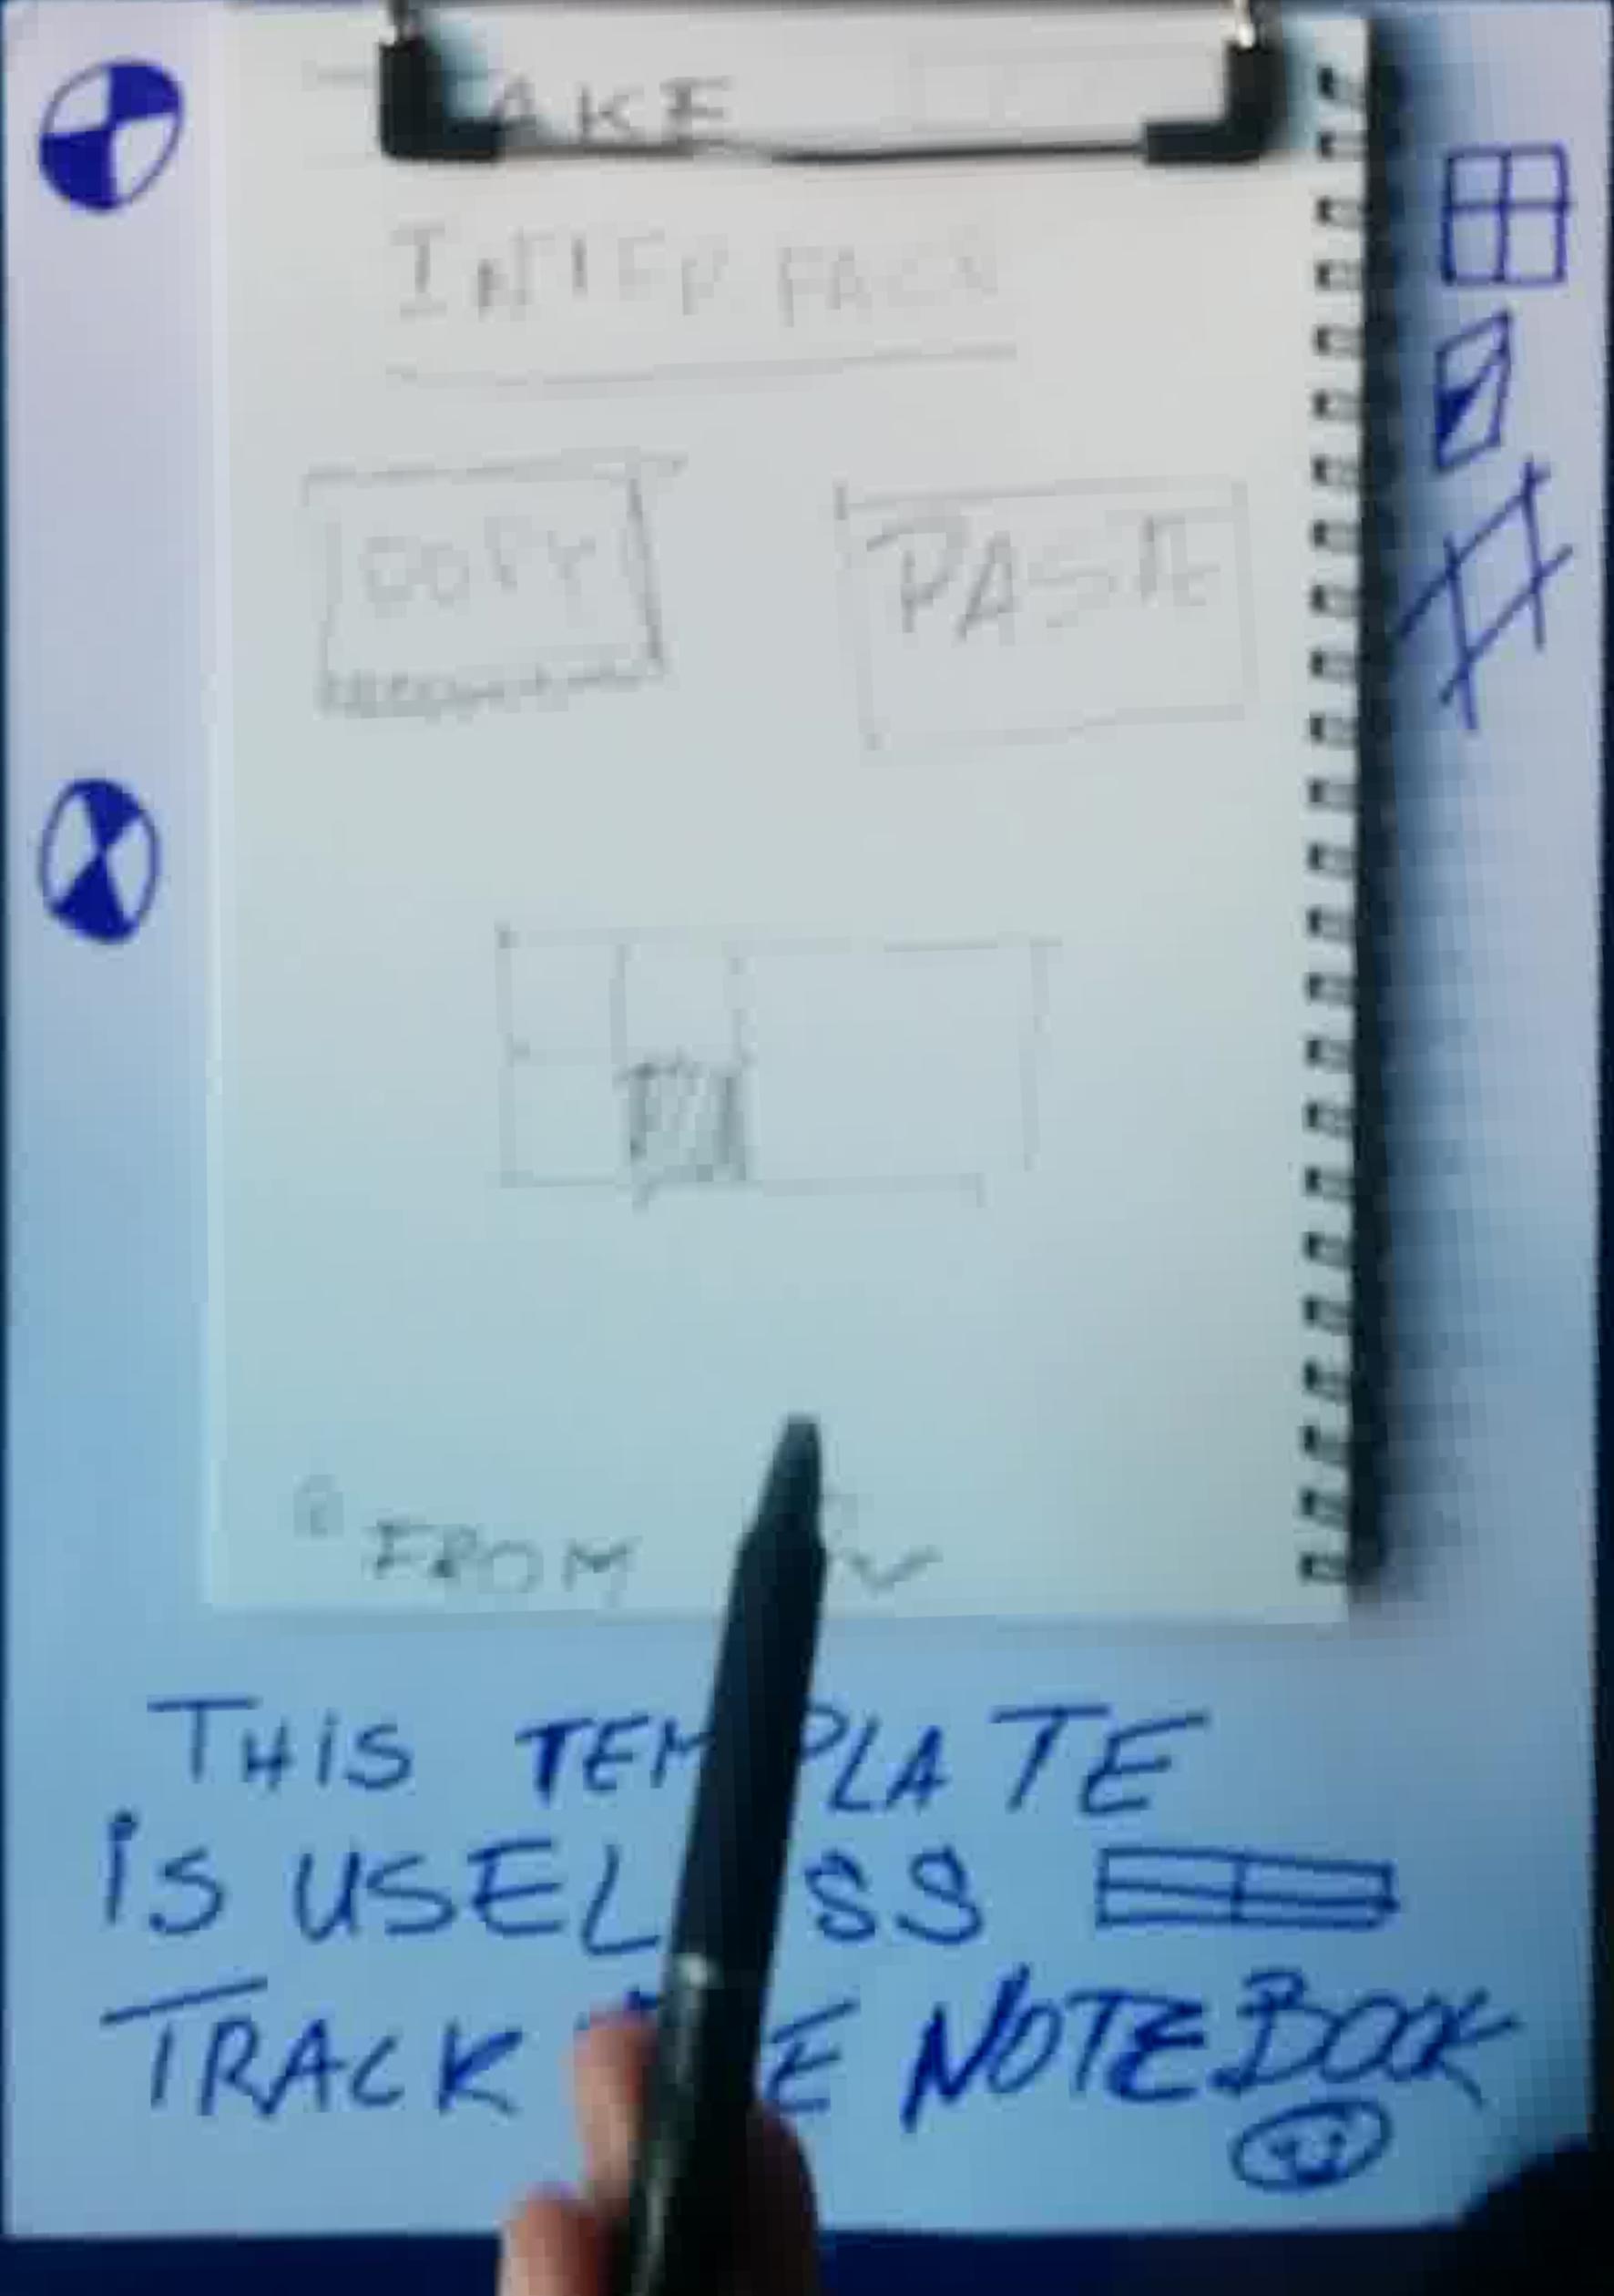 AKE
INTERFACE
COPY PASTE
FROM
THIS TEMPLATE
iS USELSS
TRACK E NOTEBOOK